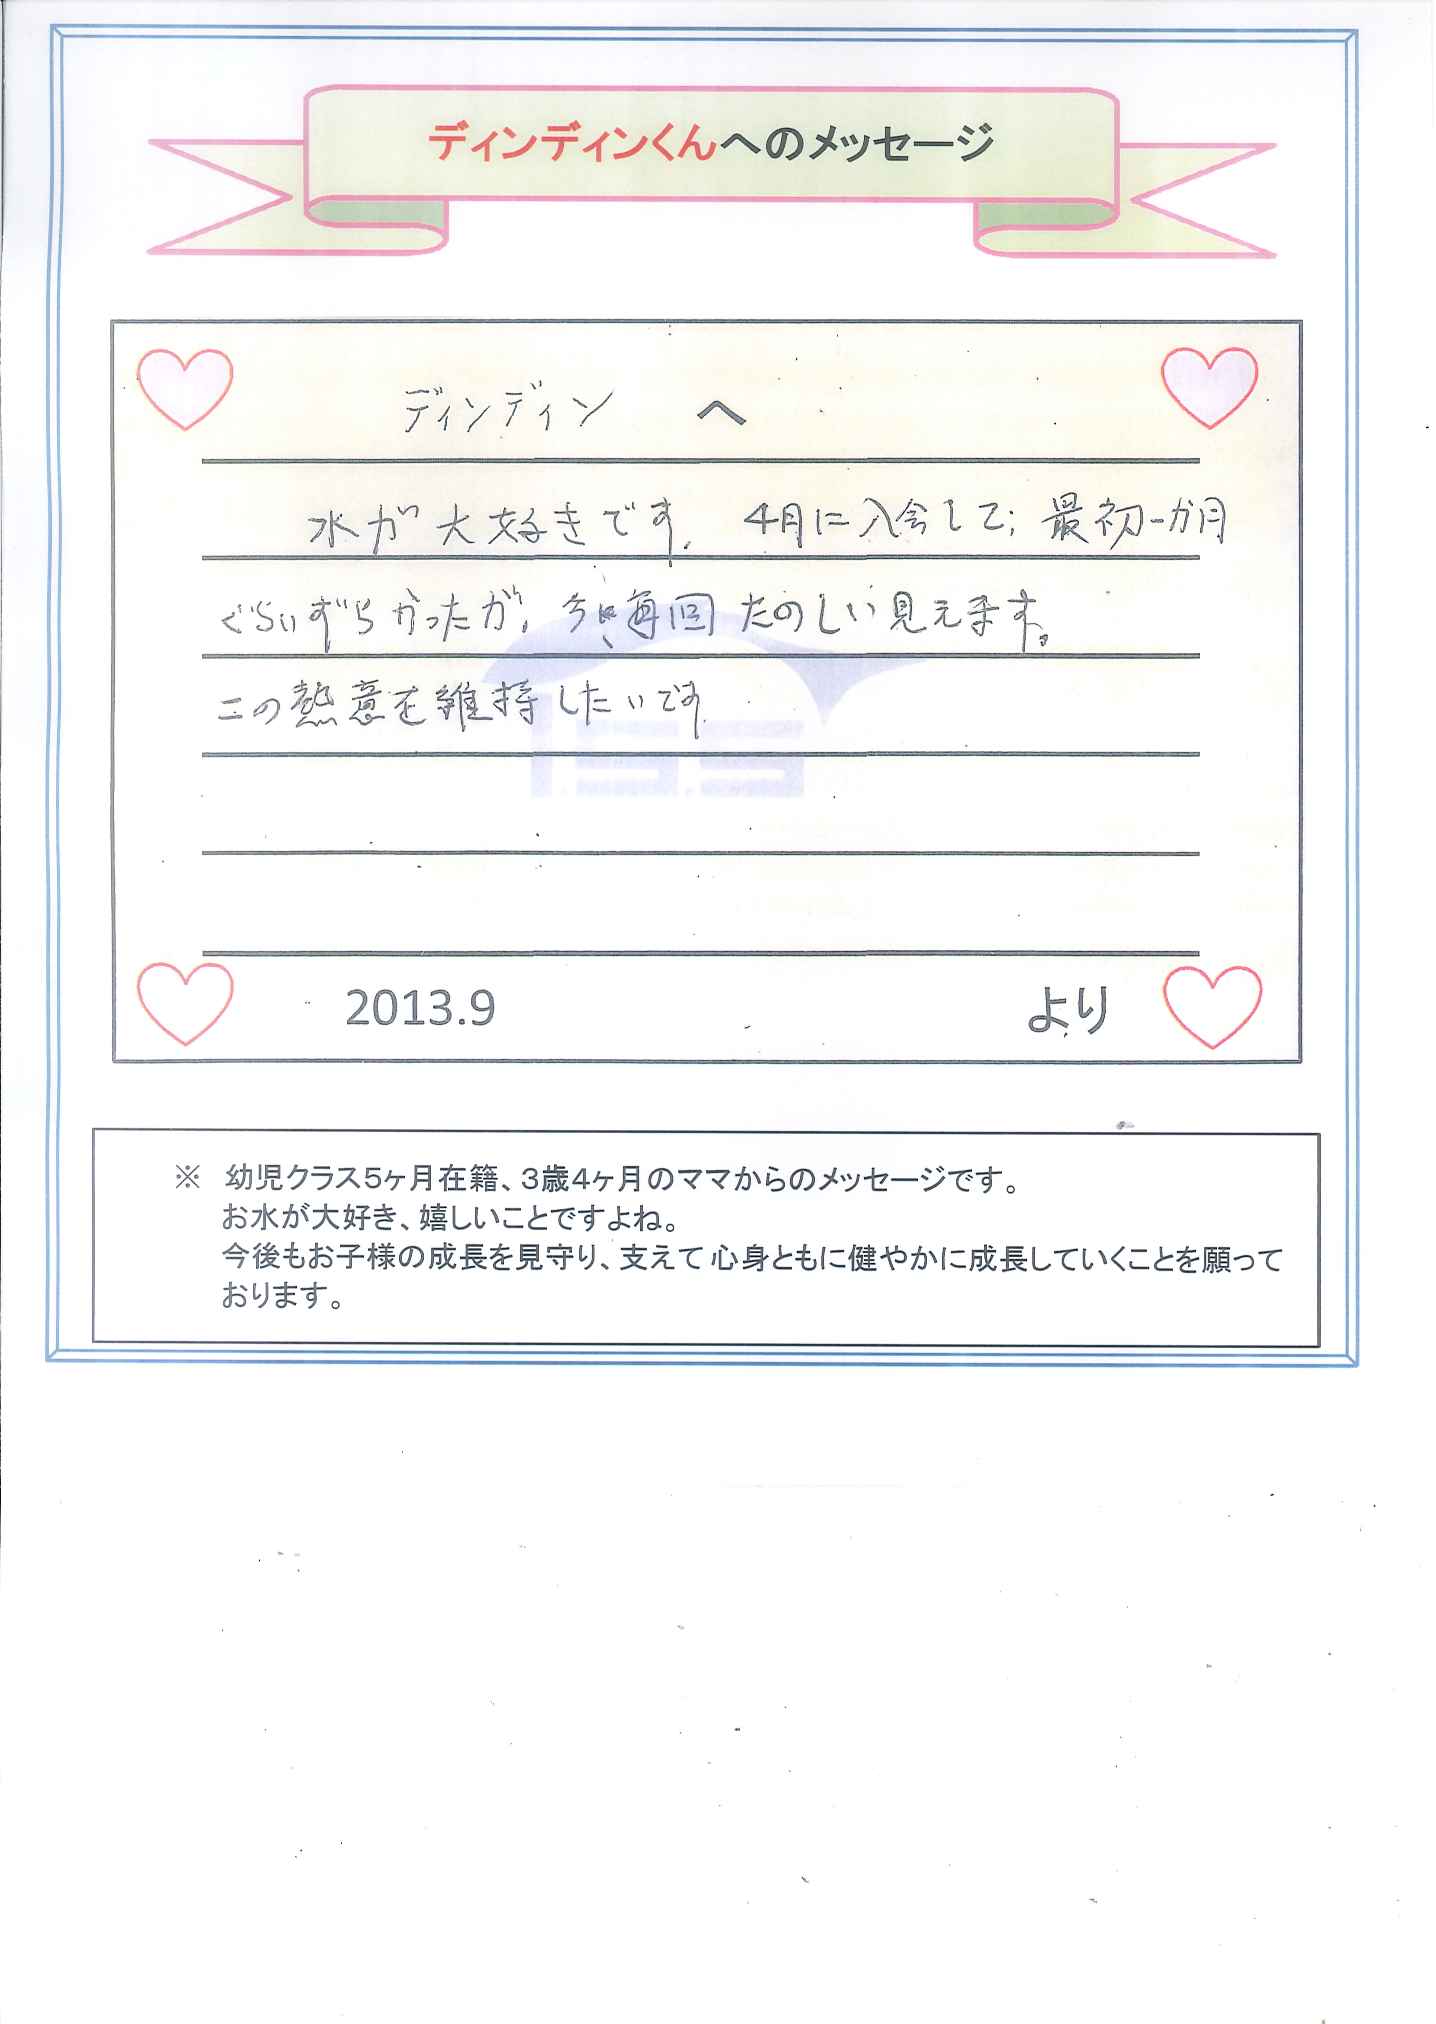 ディンディンくんへのメッセージ
ディンディン へ
水が大好きです。4月に入会して、最初一か月
ぐらいずらかったが、今は毎回たのしい見えます。
この熱意を維持したいです
ISS
2013.9 より
※ 幼児クラス5ヶ月在籍、3歳4ヶ月のママからのメッセージです。
お水が大好き、嬉しいことですよね。
今後もお子様の成長を見守り、支えて心身ともに健やかに成長していくことを願って
おります。